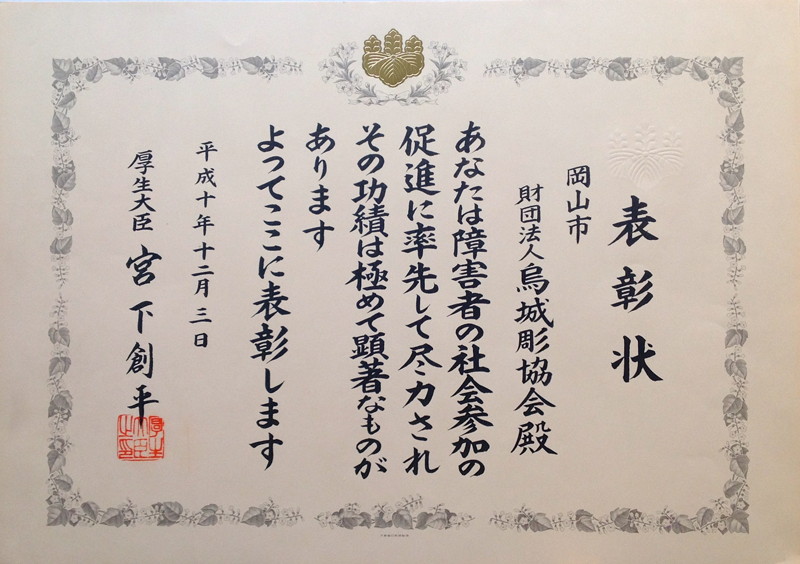 表彰状
岡山市
財団法人烏城彫協会殿
あなたは障害者の社会参加の
促進に率先して尽力され
その功績は極めて顕著なものが
あります
よってここに表彰します
平成十年十二月三日
厚生大臣 宮下創平